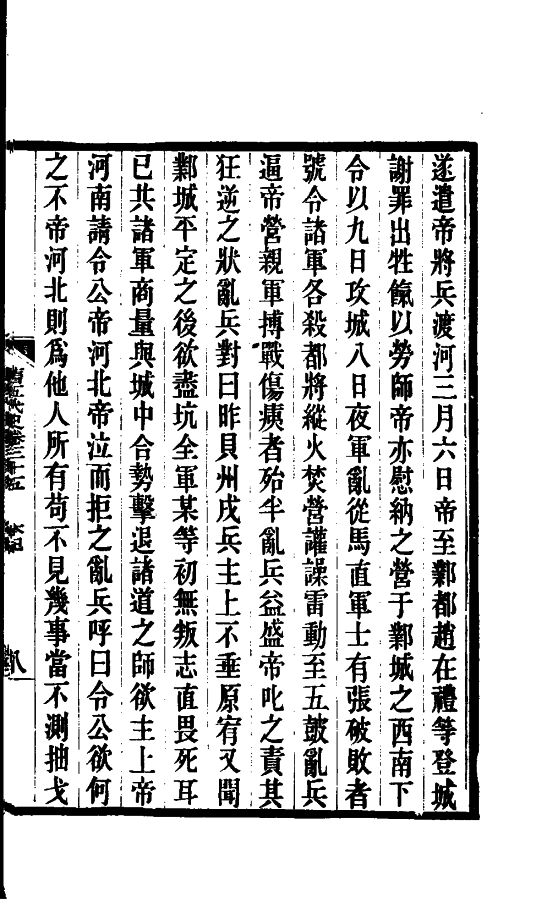 遂遣帝將兵渡河三月六日帝至鄴都趙在禮等登城
謝罪出牲餼以勞師帝亦慰納之營于鄴城之西南下
令以九日攻城八日夜軍亂從馬直軍士有張破敗者
號令諸軍各殺都將縱火焚營讙譟雷動至五鼓亂兵
逼帝營親軍搏戰傷痍者殆半亂兵益盛帝叱之責其
狂逆之狀亂兵對曰昨貝州戍兵主上不垂原宥又聞
鄴城平定之後欲盡坑全軍某等初無叛志直畏死耳
已共諸軍商量與城中合勢擊退諸道之師欲主上帝
河南請令公帝河北帝泣而拒之亂兵呼曰令公欲何
之不帝河北則爲他人所有苟不見幾事當不測抽戈
舊五代史卷三十五 本紀
八